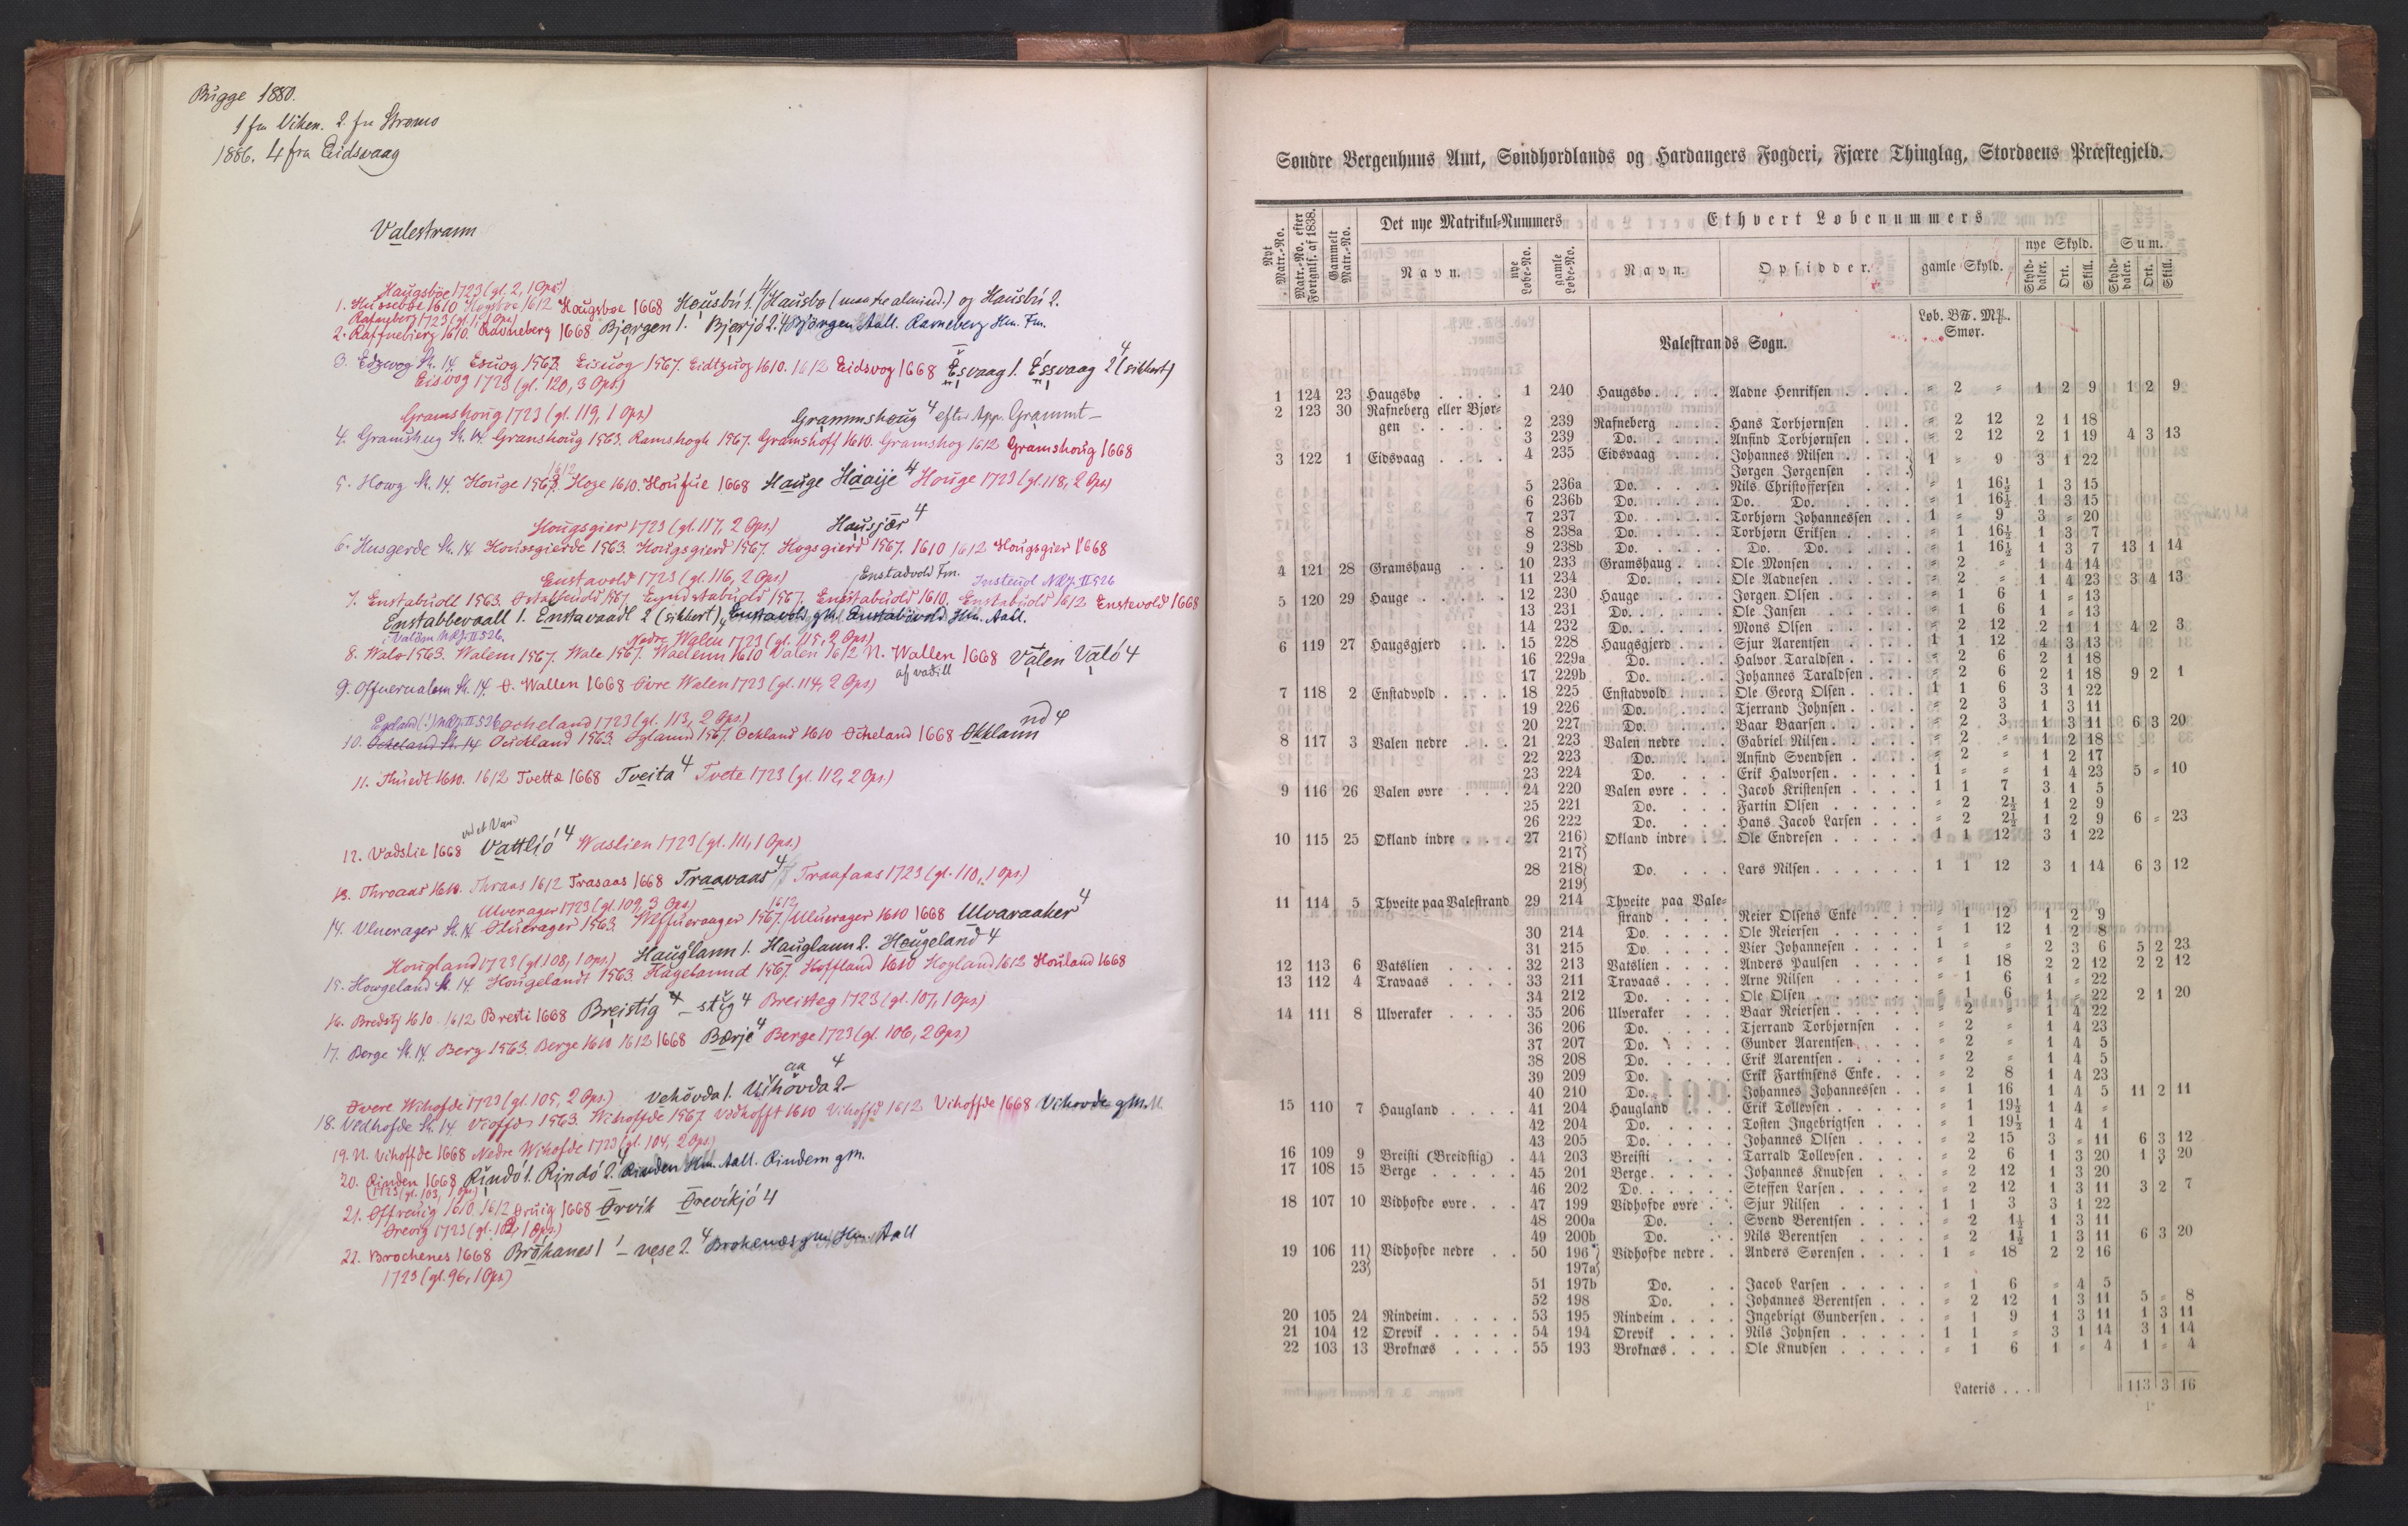 Bugge 1880.
1 fra Viken. 2. fra Stromo
1886. 4 fra Eidsvaag
Valestrann
Haugsbøe 1723 (gl. 2, 1 Ops.)
1. Hussebøe 1610 Hogsboe 1612 Hougsboe 1668 Hausbú 1. Hausbø (maaske almind.) og Hausbú 2.
Rafneberg 1723 (gl. 1, 1 Ops.)
2. Raffnebierg 1610. Ravneberg 1668 Bjørgen 1. Bjørjó 2. 4 Bjørgen Aall. Ravneberg Hm. Fm.
3. Edzwog Sk. 14. Esuog 1563. Eisuog 1567. Eidtzuog 1610. 1612 Eidsvog 1668 Esvaag 1. Essvaag 2 (sikkert) 4
Eisvog 1723 (gl. 120, 3 Ops.)
Gramshoug 1723 (gl. 119, 1 Ops.) Grammshoug 4 efter App. Grammt-
4. Gramshug Sk. 14 Granshoug 1563. Ramshogh 1567. Gramshoff 1610. Gramshog 1612 Gramshoug 1668
5. Howg Sk. 14. Houge 1563. Hoge 1610. 1612 Houfue 1668 Hauge Haaije 4 Houge 1723 (gl. 118, 2 Ops.)
Hougsgier 1723 (gl. 117, 2 Ops.) Hausjær 4
6. Husgerde Sk. 14 Houssgierde 1563. Hougsgierd 1567. Hogsgierd 1567. 1610 1612 Hougsgier 1668
Enstavold 1723 (gl. 116, 2 Ops.) Enstadvold Fm. NRJ. II 526
7. Enstabuoll 1563. Eyndstabuold 1567. Enstabuold 1610. Enstabuold 1612 Enstevold 1668
Enstabbevaall 1. Enstavaadl 2 (sikkert), Enstavold gM. Hm. Aall.
NRJ. II 526. Nedre Walen 1723 (gl. 115, 2 Ops.)
8. Walo 1563. Walem 1567. Wale 1567. Waelenn 1610 Valen 1612 N. Wallen 1668 Vålen Való 4
af vaðill
9. Offuerualem Sk. 14. Ø. Wallen 1668 Øvre Walen 1723 (gl. 114, 2 Ops.)
Egeland (!) NRJ. II 526 Ocheland 1723 (gl. 113, 2 Ops.) nd 4
10. Ocheland Sk. 14 Ouckland 1563. Ogland 1567. Ockland 1610 Ocheland 1668 Økklann
11. Thuedt 1610. 1612 Tvette 1668 Tveita 4 Tvete 1723 (gl. 112, 2 Ops.)
ved et Vand
12. Vadslie 1668 Vattlió 4 Waslien 1723 (gl. 111, 1 Ops.)
13. Throaas 1610. Thraas 1612 Trasaas 1668 Traavaas 4 Traafaas 1723 (gl. 110, 1 Ops.)
Ulverager 1723 (gl. 109, 3 Ops.) 1612
14. Vluerager Sk. 14. Oluerager 1563. Wlffueraager 1567. Uluerager 1610 1668 Ulvaraaker 4
Hougland 1723 (gl. 108, 1 Ops.) Hauglann 1. Hauglann 2. Haugeland 4
15. Howgeland Sk. 14. Hougelandt 1563. Hagelannd 1567. Hoffland 1610 Hogland 1612 Houland 1668
16. Bredstj 1610. 1612 Bresti 1668 Breistíg 4 - stig 4 Breisteg 1723 (gl. 107, 1 Ops.)
17. Berge Sk. 14. Berg 1563. Berge 1610 1612 1668 Børje 4 Berge 1723 (gl. 106, 2 Ops.)
aa 4
Øvere Wihofde 1723 (gl. 105, 2 Ops.) Vehövda 1. Vihövda 2-
18. Vedhofde Sk. 14 Vioffde 1563. Wihoffde 1567. Vedhofft 1610 Vihoffd 1612 Vihoffde 1668 Vihovde gM.
19. N. Vihoffde 1668 Nedre Wihofde 1723 (gl. 104, 2 Ops.)
20. Rinden 1668 Rindó 1. Rindó 2. Rinden Hm. Aall. Rindem gM.
(1723 (gl. 103, 1 Ops.)
21. Offreuig 1610. 1612 Øruig 1668 Ørvík Ørevíkjó 4
Ørevig 1723 (gl. 102, 1 Ops.)
22. Brochenes 1668 Brókanes 1 - nese 2. 4 Brokenæs gM. Hm. Aall
1723 (gl. 96, 1 Ops.)
Søndre Bergenhuus Amt, Søndhordlands og Hardangers Fogderi, Fjære Thinglag, Stordøens Præstegjeld.
Nyt Matr.-No. Matr.-No. efter Fortegnls. af 1838. Gammelt Matr.-No. Det nye Matrikul-Nummers Ethvert Løbenummers
Navn. nye Løbe-No. gamle Løbe-No. Navn. Opsidder. gamle Skyld. nye Skyld. Sum.
Skyld-daler. Ort. Skill. Skyld-daler. Ort. Skill.
Valestrands Sogn. Løb. B℔. M℔. Smør.
1 124 23 Haugsbø 1 240 Haugsbø Aadne Henriksen = 2 = 1 2 9 1 2 9
2 123 30 Rafneberg eller Bjør-
gen 2 239 Rafneberg Hans Torbjørnsen = 2 12 2 1 18
3 239 Do. Anfind Torbjørnsen = 2 12 2 1 19 4 3 13
3 122 1 Eidsvaag 4 235 Eidsvaag Johannes Nilsen
Jørgen Jørgensen } 1 = 9 3 1 22
5 236a Do. Nils Christoffersen = 1 16½ 1 3 15
6 236b Do. Do. Do. = 1 16½ 1 3 15
7 237 Do. Torbjørn Johannessen 1 = 9 3 = 20
8 238a Do. Torbjørn Eriksen = 1 16½ 1 3 7
9 238b Do. Do. Do. = 1 16½ 1 3 7 13 1 14
4 121 28 Gramshaug 10 233 Gramshaug Ole Monsen = 2 = 1 4 14
11 234 Do. Ole Aadnesen = 2 = 1 4 23 3 4 13
5 120 29 Hauge 12 230 Hauge Jørgen Olsen = 1 6 1 = 13
13 231 Do. Ole Jansen = 1 6 1 = 13
14 232 Do. Mons Olsen = 2 12 2 1 1 4 2 3
6 119 27 Haugsgjerd 15 228 Haugsgjerd Sjur Aarentsen 1 1 12 4 3 13
16 229a Do. Halvor Taraldsen = 2 6 2 1 18
17 229b Do. Johannes Taraldsen = 2 6 2 1 18 9 2 1
7 118 2 Enstadvold 18 225 Enstadvold Ole Georg Olsen 1 1 6 3 1 22
19 226 Do. Tjerrand Johnsen = 2 3 1 3 11
20 227 Do. Baar Baarsen = 2 3 1 3 11 6 3 20
8 117 3 Valen nedre 21 223 Valen nedre Gabriel Nilsen = 2 = 1 2 18
22 223 Do. Anfind Svendsen = 2 = 1 2 17
23 224 Do. Erik Halvorsen 1 = = 1 4 23 5 = 10
9 116 26 Valen øvre 24 220 Valen øvre Jacob Kristensen 1 1 7 3 1 5
25 221 Do. Fartin Olsen = 2 2½ 1 2 9
26 222 Do. Hans Jacob Larsen = 2 2½ 1 2 9 6 = 23
10 115 25 Økland indre 27 216} Økland indre Ole Endresen 1 1 12 3 1 22
217}
28 218} Do. Lars Nilsen 1 1 12 3 1 14 6 3 12
219}
11 114 5 Thveite paa Valestrand 29 214 Thveite paa Vale-
strand Reier Olsens Enke = 1 12 1 2 9
30 214 Do. Ole Reiersen = 1 12 1 2 8
31 215 Do. Vier Johannesen 1 = = 2 3 6 5 2 23
12 113 6 Vatslien 32 213 Vatslien Anders Paulsen = 1 18 2 2 12 2 2 12
13 112 4 Travaas 33 211 Travaas Arne Nilsen = 1 6 1 = 22
34 212 Do. Ole Olsen = 1 6 1 = 22 2 1 20
14 111 8 Ulveraker 35 206 Ulveraker Baar Reiersen = 2 = 1 4 22
36 206 Do. Tjerrand Torbjørnsen = 2 = 1 4 23
37 207 Do. Gunder Aarentsen = 2 = 1 4 5
38 208 Do. Erik Aarentsen = 2 = 1 4 5
39 209 Do. Erik Fartinsens Enke = 2 8 1 4 23
40 210 Do. Johannes Johannessen = 1 16 1 4 5 11 2 11
15 110 7 Haugland 41 204 Haugland Erik Tollevsen = 1 19½ 1 4 =
42 204 Do. Tosten Ingebrigtsen = 1 19½ 1 4 1
43 205 Do. Johannes Olsen = 2 15 3 = 11 6 3 12
16 109 9 Breisti (Breidstig) 44 203 Breisti Tarrald Tollevsen = 2 6 1 3 20 1 3 20
17 108 15 Berge 45 201 Berge Johannes Knudsen = 2 12 1 3 20
46 202 Do. Steffen Larsen = 2 12 1 3 11 3 2 7
18 107 10 Vidhofde øvre 47 199 Vidhofde øvre Sjur Nilsen 1 1 3 3 1 22
48 200a Do. Svend Berentsen = 2 1½ 1 3 11
49 200b Do. Nils Berentsen = 2 1½ 1 3 11 6 3 20
19 106 11} Vidhofde nedre 50 196} Vidhofde nedre Anders Sørensen 1 = 18 2 2 16
23} 197a}
51 197b Do. Jacob Larsen = 1 6 = 4 5
52 198 Do. Johannes Berentsen = 2 12 1 3 11 5 = 8
20 105 24 Rindeim 53 195 Rindeim Ingebrigt Gundersen = 1 9 1 3 11 1 3 11
21 104 12 Ørevik 54 194 Ørevik Nils Johnsen 1 1 = 3 1 14 3 1 14
22 103 13 Broknæs 55 193 Broknæs Ole Knudsen = 1 6 1 = 4 1 = 4
Lateris 113 3 16